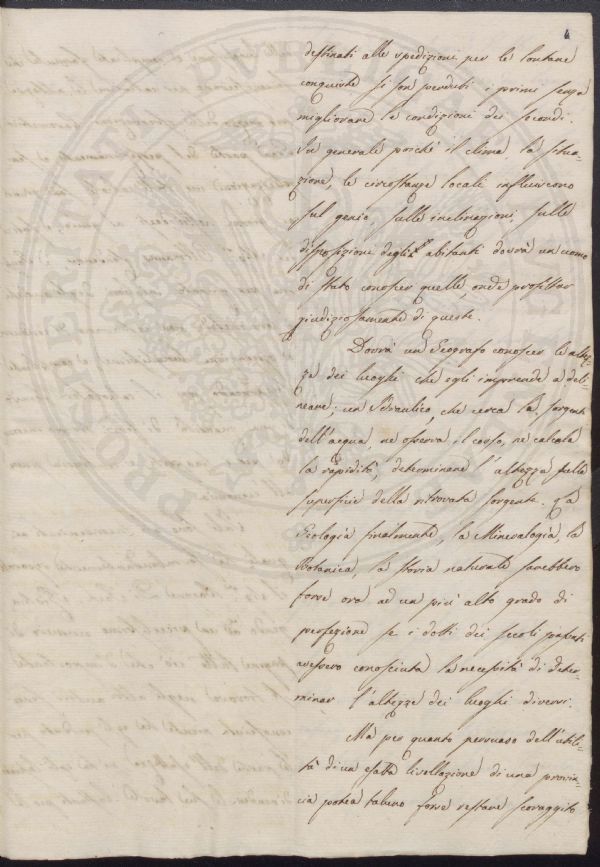 4
destinati alle spedizioni per le lontane
conquiste si son perduti i primi senza
migliorare le condizioni dei secondi.
In generale poiché il clima, la situa-
zione, le circostanze locali influiscono
sul genio, sulle inclinazioni, sulle
disposizioni degli abitanti dovrà un uomo
di stato conoscer quelle, onde profittar
giudiziosamente di queste.
Dovrà un Geografo conoscer le altez-
ze dei luoghi che egli imprende a deli-
neare; un Idraulico, che cerca la sorgente
dell'acqua, ne osserva il corso, ne calcola
la rapidità, determinare l'altezza sulla
superficie della ritrovata sorgente. La
Geologia finalmente, la Mineralogia, la
Botanica, la storia naturale sarebbero
forse ora ad un più alto grado di
perfezione se i dotti dei secoli passati
avessero conosciuta la necessità di deter-
minar l'altezze dei luoghi diversi.
Ma per quanto persuaso dell'utili-
tà di una esatta livellazione di una provin-
cia potea taluno forse restare scoraggito